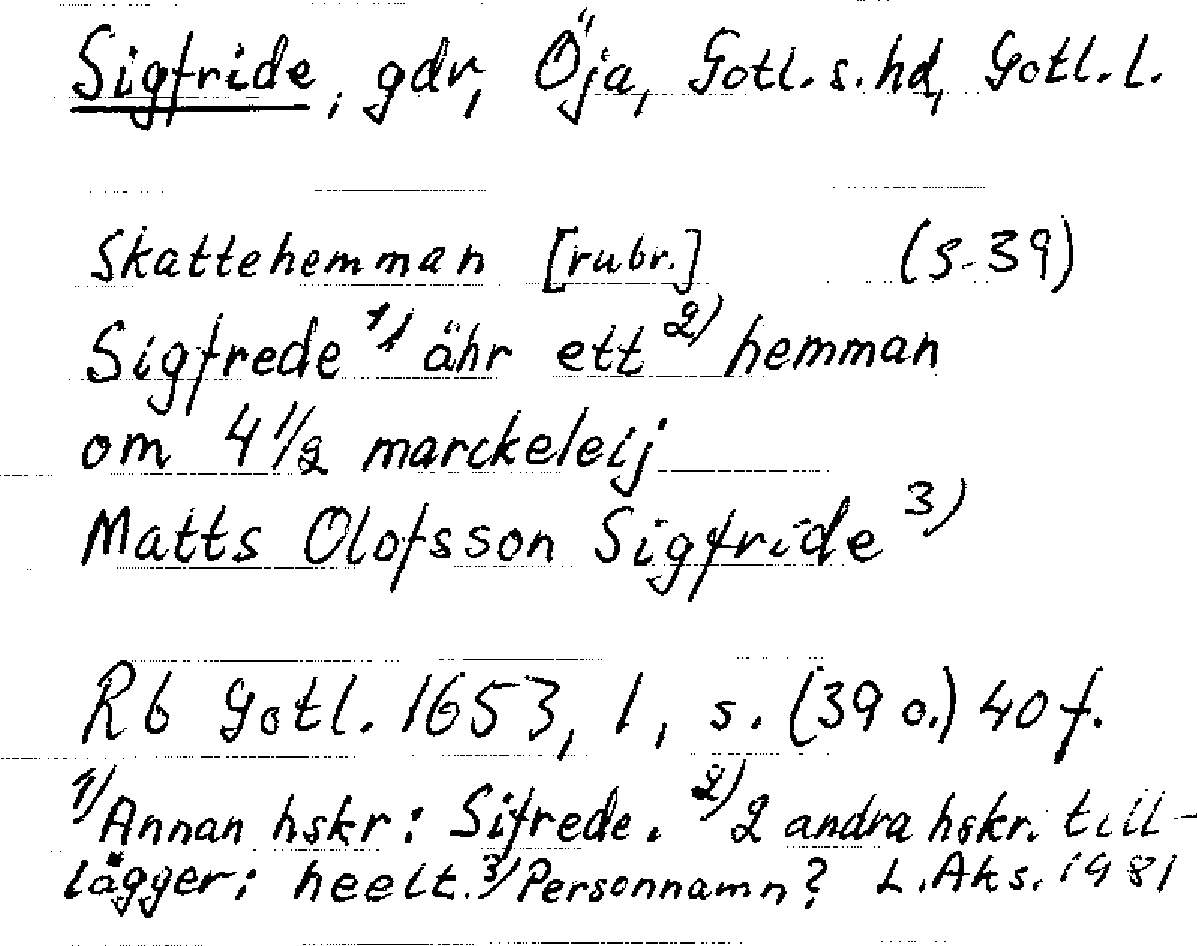 Sigfride, gdr, Öja, Gotl. s. hd, Gotl. l.
Skattehemman [rubr.] (s. 39)
Sigfrede 1) ähr ett 2) hemman
om 4 1/2 marckeleij
Matts Olofsson Sigfride 3)
Rb Gotl. 1653, 1, s. (39 o.) 40 f.
1) Annan hskr: Sifrede. 2) 2 andra hskr. till-
lägger: heelt. 3) Personnamn? L. Aks. 1981